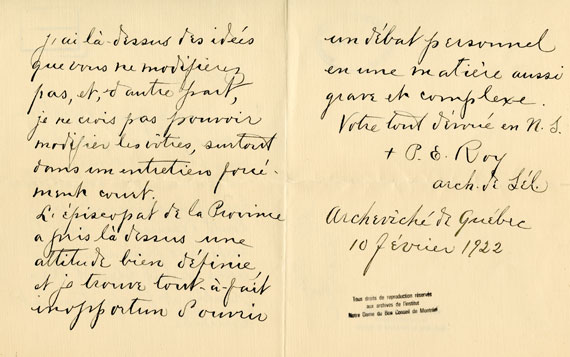 j'ai là-dessus des idées
que vous ne modifierez
pas, et, d'autre part,
je ne crois pas pouvoir
modifier les vôtres, surtout
dans un entretien forcé-
ment court.
L'épiscopat de la Province
a pris là-dessus une
attitude bien définie
et je trouve tout-à-fait
inopportun d'ouvrir
un débat personnel
en une matière aussi
grave et complexe.
Votre tout dévoué en N. S.
+ P. E. Roy
arch. de Sél.
Archevêché de Québec
10 février 1922
Tous droits de reproduction réservés
aux archives de l'Institut
Notre Dame du Bon Conseil de Montréal